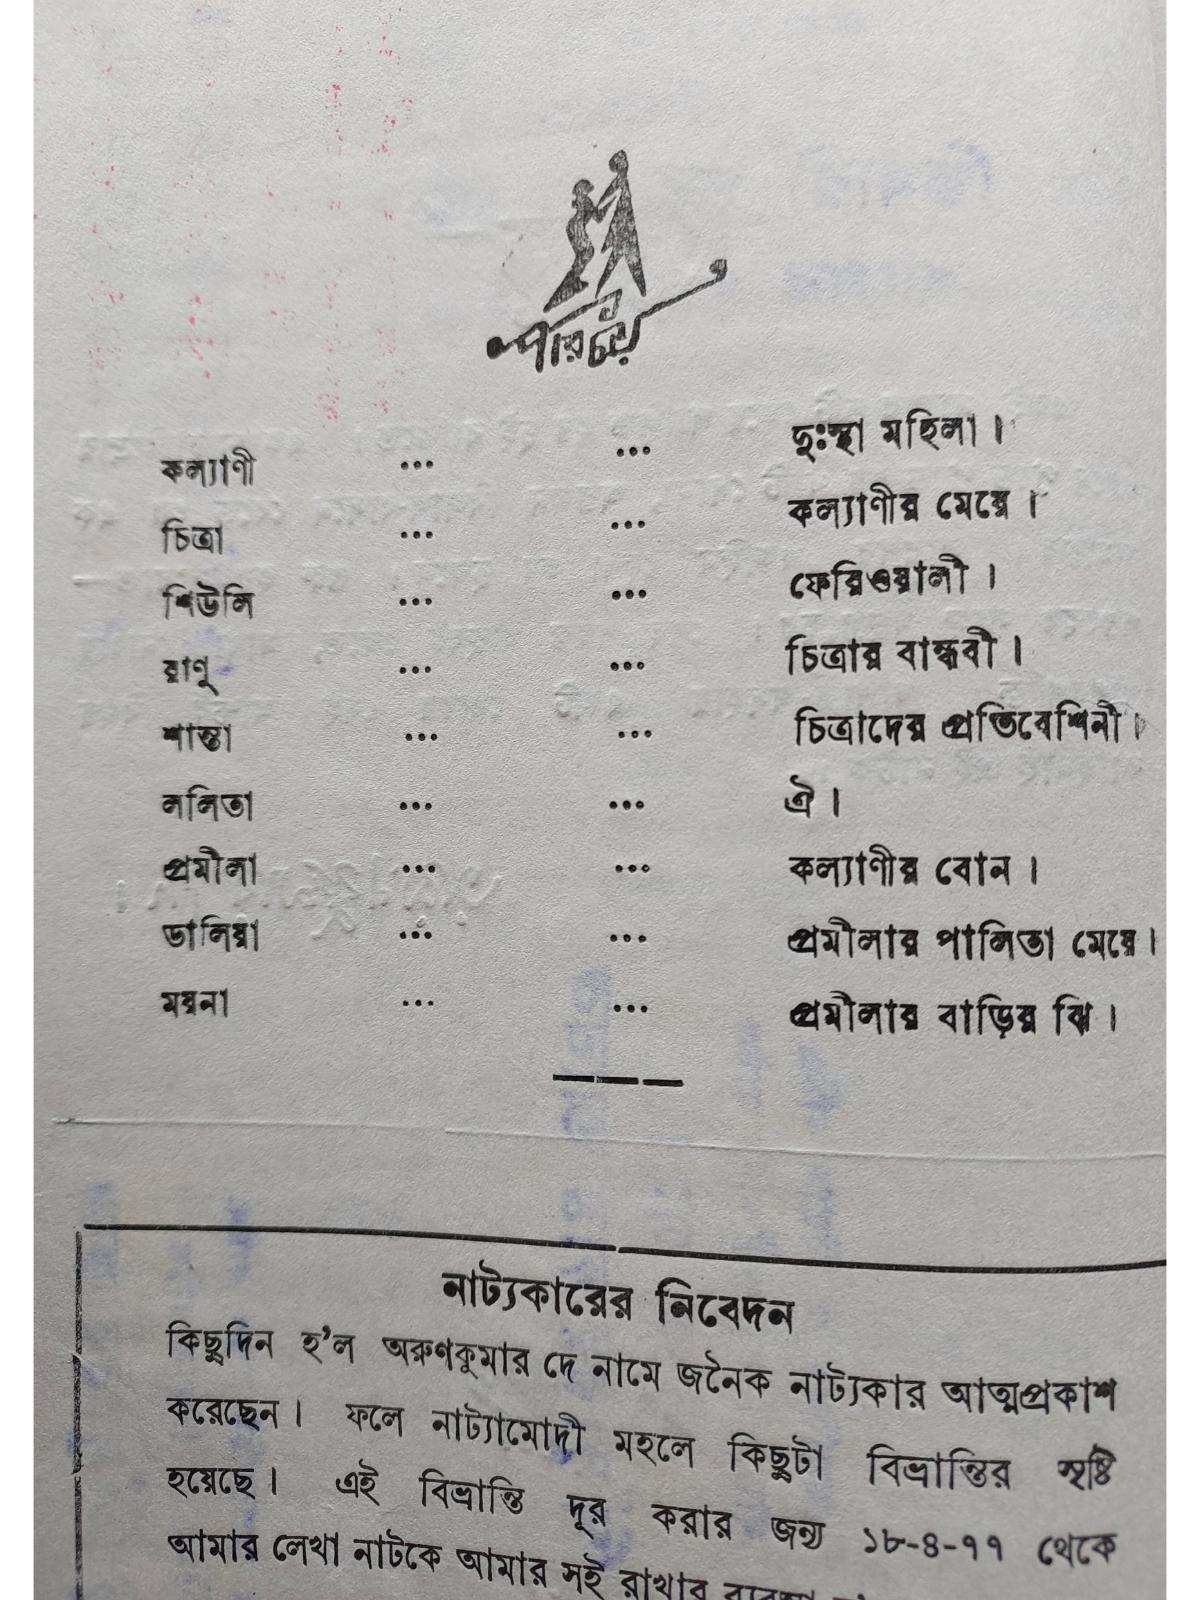 পরিচয়
কল্যাণী ... ... দুঃস্থা মহিলা।
চিত্রা ... ... কল্যাণীর মেয়ে।
শিউলি ... ... ফেরিওয়ালী।
রাণু ... ... চিত্রার বান্ধবী।
শান্তা ... ... চিত্রাদের প্রতিবেশিনী।
ললিতা ... ... ঐ।
প্রমীলা ... ... কল্যাণীর বোন।
ডালিয়া ... ... প্রমীলার পালিতা মেয়ে।
ময়না ... ... প্রমীলার বাড়ির ঝি।
নাট্যকারের নিবেদন
কিছুদিন হ'ল অরুণকুমার দে নামে জনৈক নাট্যকার আত্মপ্রকাশ
করেছেন। ফলে নাট্যামোদী মহলে কিছুটা বিভ্রান্তির সৃষ্টি
হয়েছে। এই বিভ্রান্তি দূর করার জন্য ১৮-৪-৭৭ থেকে
আমার লেখা নাটকে আমার সই রাখার